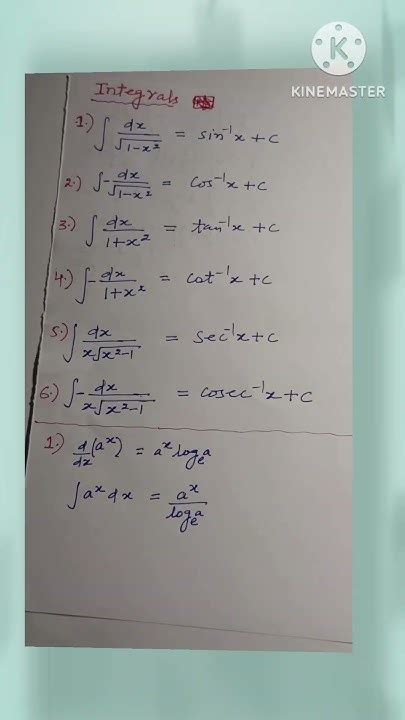 KINEMASTER
Integrals
1.) ∫ dx/√1-x² = sin⁻¹x + c
2.) ∫ - dx/√1-x² = cos⁻¹x + c
3.) ∫ dx/1+x² = tan⁻¹x + c
4.) ∫ - dx/1+x² = cot⁻¹x + c
5.) ∫ dx/x√x²-1 = sec⁻¹x + c
6.) ∫ - dx/x√x²-1 = cosec⁻¹x + c
1.) d/dx (aˣ) = aˣ logₑa
∫ aˣ dx = aˣ/logₑa